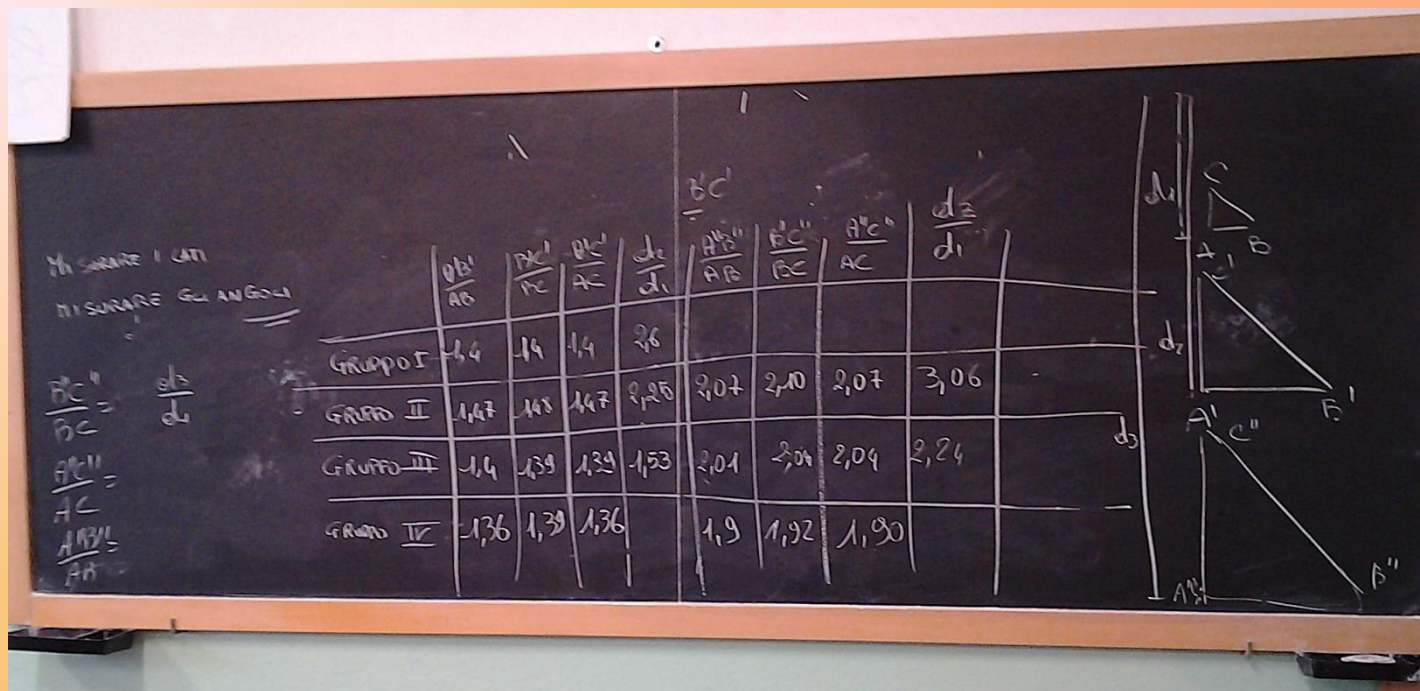 MISURARE I LATI
MISURARE GLI ANGOLI
B"C"/BC =
d3/d1
A"C"/AC =
A"B"/AB =
B'C'
A'B'/AB B'C'/BC A'C'/AC d2/d1 A"B"/AB B"C"/BC A"C"/AC
GRUPPO I 1,4 1,4 1,4 2,6
GRUPPO II 1,47 1,48 1,47 2,25 2,07 2,10 2,07 3,06
GRUPPO III 1,4 1,39 1,39 1,53 2,01 2,04 2,24
GRUPPO IV 1,36 1,39 1,36 1,9 1,92 1,90
d1
C
A B
C'
d2
A' B'
d3
C"
A" B"